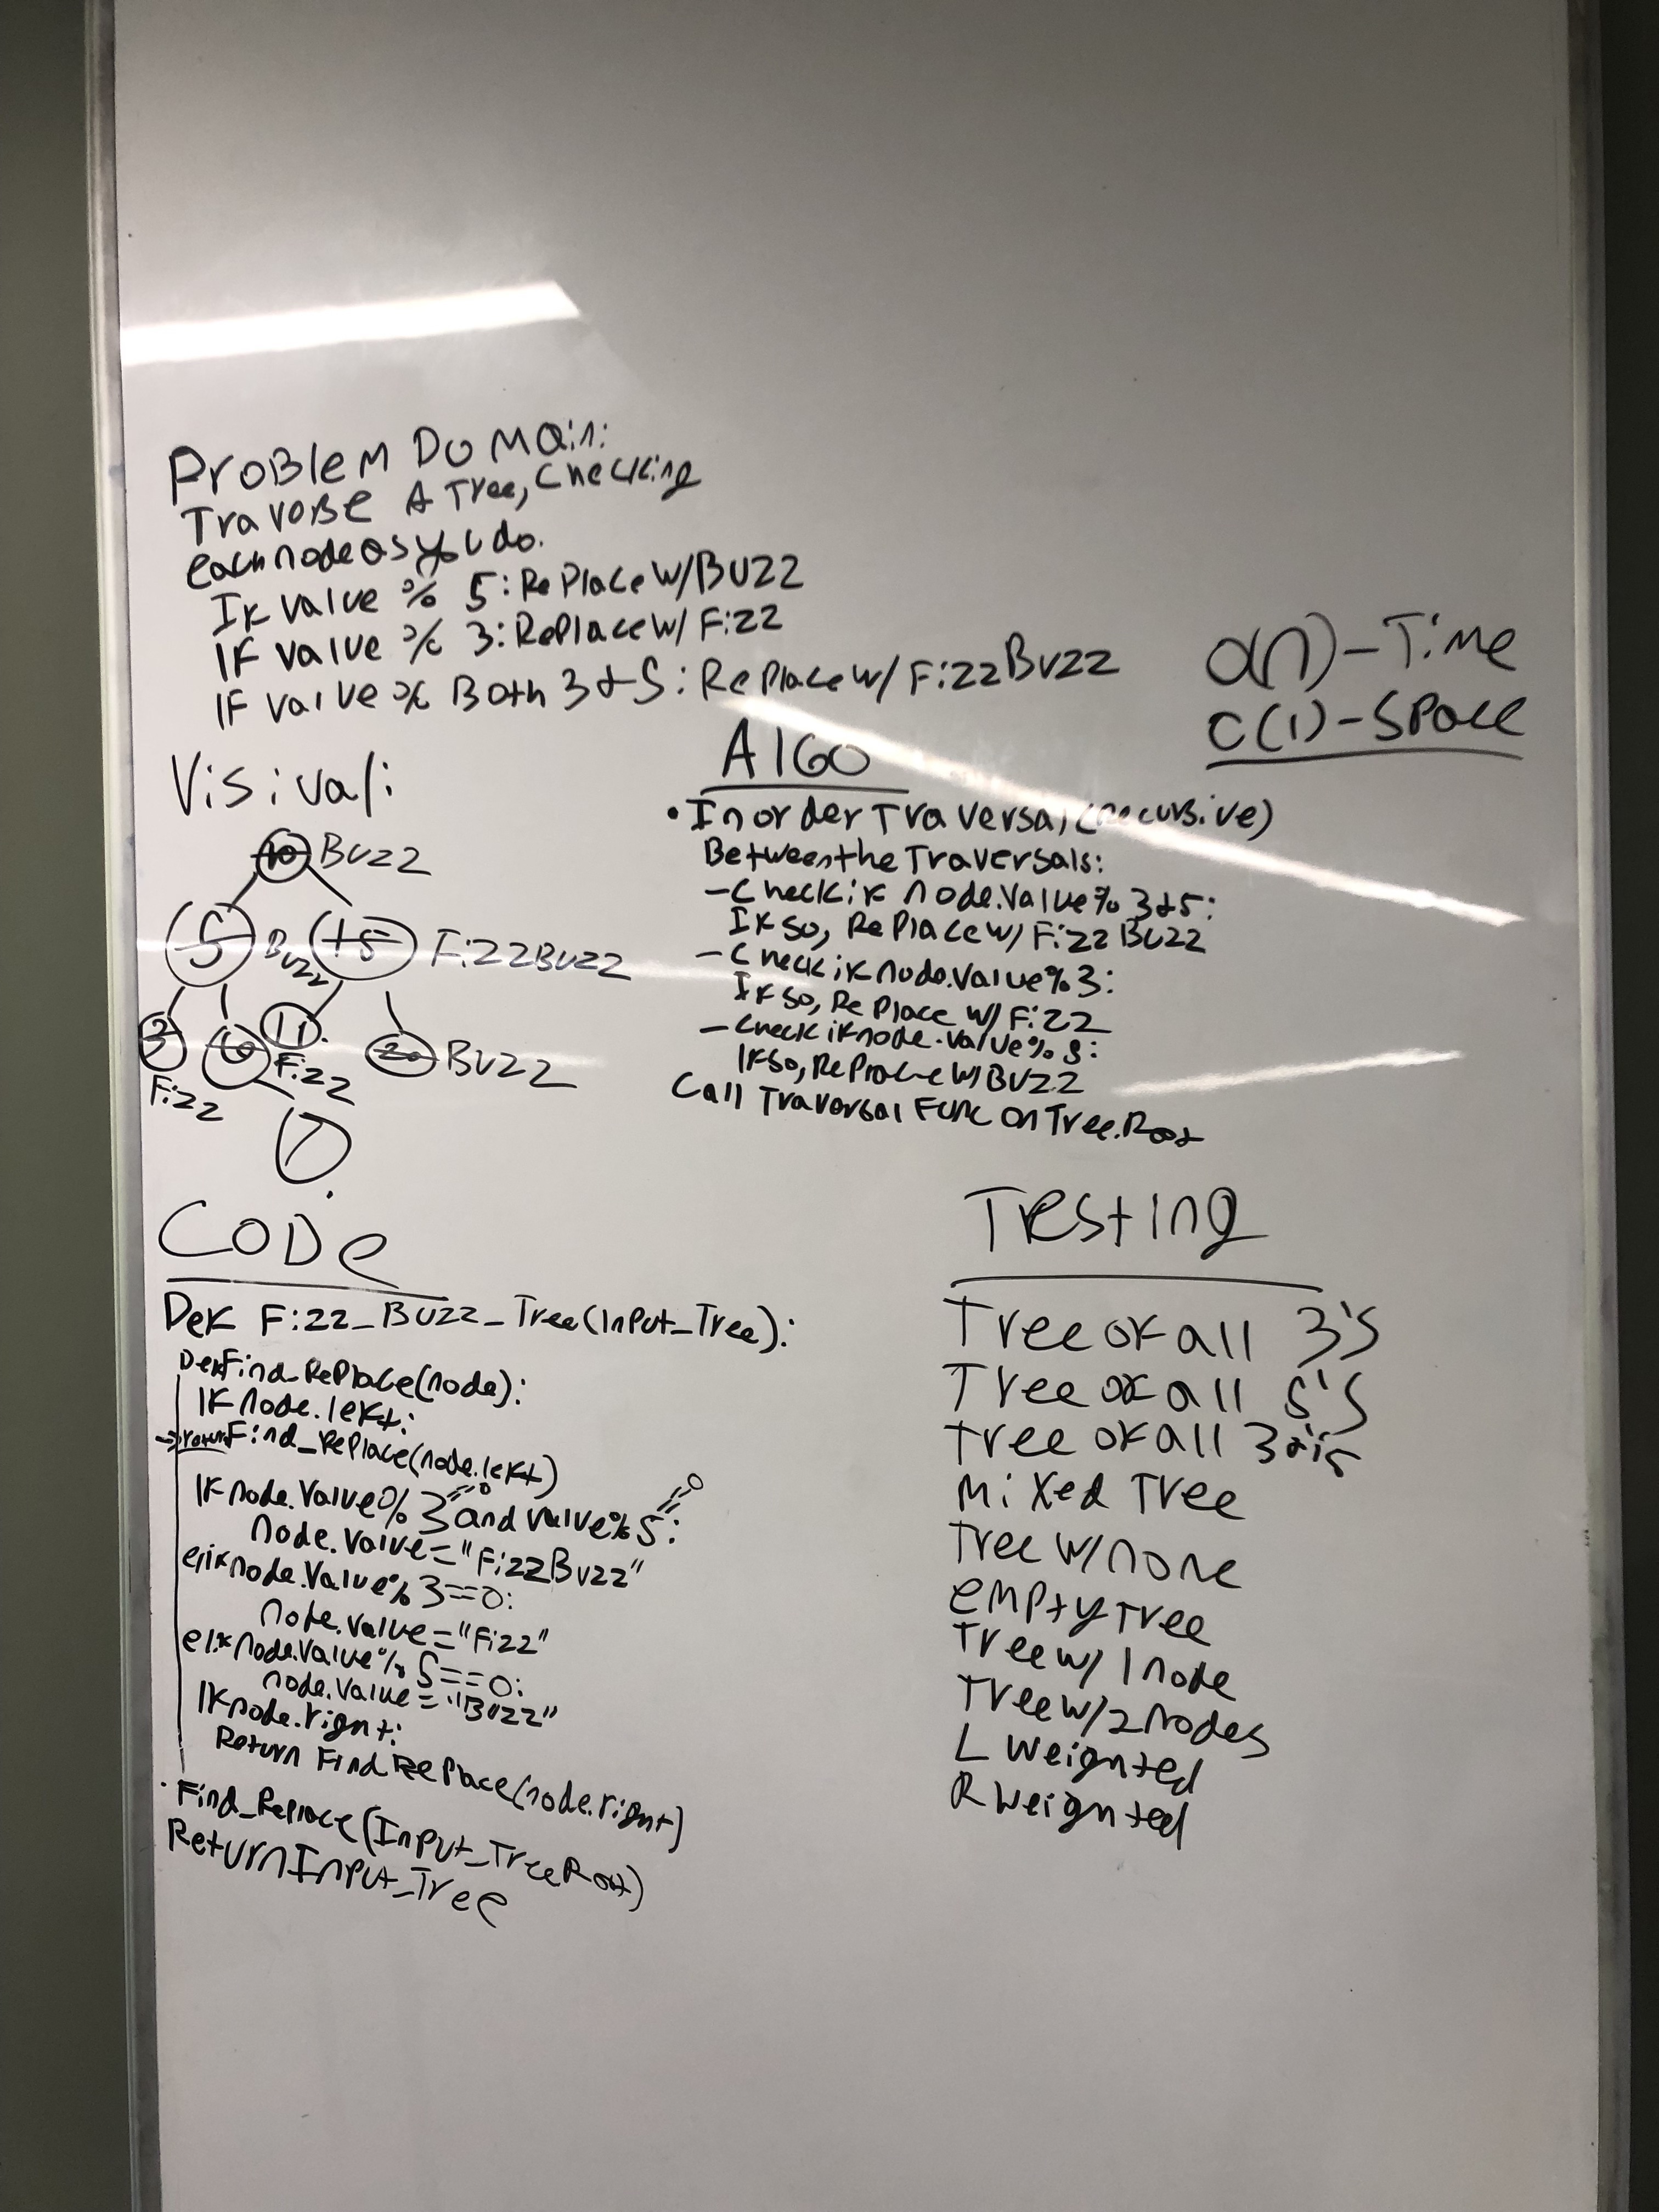 Problem Domain:
Traverse A Tree, Checking
each node as you do.
If value % 5: Replace w/ Buzz
If value % 3: Replace w/ Fizz
If value % Both 3 + 5: Replace w/ FizzBuzz
O(n) - Time
O(1) - Space
Visual:
10 Buzz
5 Buzz 15 FizzBuzz
3 6 11. 20 Buzz
Fizz Fizz
7.
Algo
• Inorder Traversal (recursive)
Between the Traversals:
- Check if node.value % 3 + 5:
If so, Replace w/ FizzBuzz
- Check if node.value % 3:
If so, Replace w/ Fizz
- Check if node.value % 5:
If so, Replace w/ Buzz
Call Traversal Func on Tree.Root
Code
Def Fizz_Buzz_Tree(Input_Tree):
Def Find_Replace(node):
If node.left:
→ return Find_Replace(node.left)
If node.value % 3 == 0 and value % 5 == 0:
node.value = "FizzBuzz"
elif node.value % 3 == 0:
node.value = "Fizz"
elif node.value % 5 == 0:
node.value = "Buzz"
If node.right:
Return Find Replace(node.right)
Find_Replace(Input_Tree.Root)
Return Input_Tree
Testing
Tree of all 3's
Tree of all 5's
Tree of all 3+5
Mixed Tree
Tree w/ none
empty tree
Tree w/ 1 node
Tree w/ 2 nodes
L Weighted
R Weighted